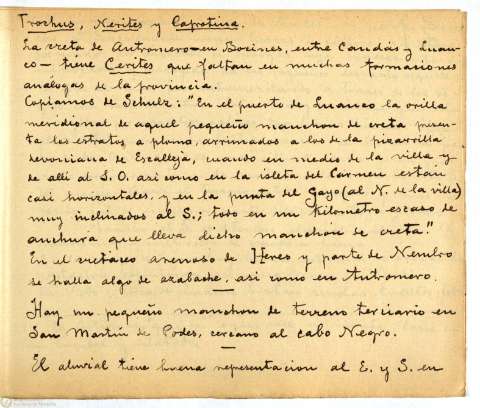 Trochus, Nerites y Caprotina.
La creta de Antromero-en Bocines, entre Candás y Luan-
co- tiene Cerites que faltan en muchas formaciones
análogas de la provincia.
Copiamos de Schulz: "En el puerto de Luanco la orilla
meridional de aquel pequeño manchon de creta presen-
ta los estratos a plomo, arrimados a los de la pizarrilla
devoniana de Escalleja, cuando en medio de la villa y
de alli al S.O. asi como en la isleta del Carmen estan
casi horizontales, y en la punta del Gayo (al N. de la villa)
muy inclinados al S.; todo en un kilometro escaso de
anchura que lleva dicho manchon de creta."
En el cretaceo arenoso de Heres y parte de Nembro
se halla algo de azabache, asi como en Antromero.
Hay un pequeño manchon de terreno terciario en
San Martin de Podes, cercano al cabo Negro.
El aluvial tiene buena representacion al E. y S. en